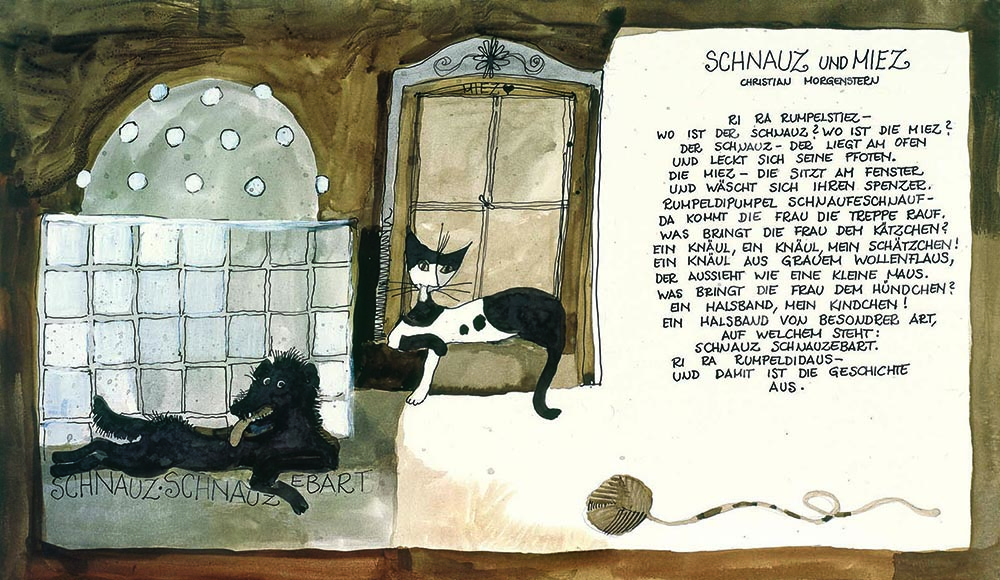 MIEZ
SCHNAUZ UND MIEZ
CHRISTIAN MORGENSTERN
RI RA RUMPELSTIEZ –
WO IST DER SCHNAUZ? WO IST DIE MIEZ?
DER SCHNAUZ – DER LIEGT AM OFEN
UND LECKT SICH SEINE PFOTEN.
DIE MIEZ – DIE SITZT AM FENSTER
UND WÄSCHT SICH IHREN SPENZER.
RUMPELDIPUMPEL SCHNAUFESCHNAUF –
DA KOMMT DIE FRAU DIE TREPPE RAUF.
WAS BRINGT DIE FRAU DEM KÄTZCHEN?
EIN KNÄUL, EIN KNÄUL, MEIN SCHÄTZCHEN!
EIN KNÄUL AUS GRAUEM WOLLENFLAUS,
DER AUSSIEHT WIE EINE KLEINE MAUS.
WAS BRINGT DIE FRAU DEM HÜNDCHEN?
EIN HALSBAND, MEIN KINDCHEN!
EIN HALSBAND VON BESONDRER ART,
AUF WELCHEM STEHT:
SCHNAUZ SCHNAUZEBART.
RI RA RUMPELDIDAUS –
UND DAMIT IST DIE GESCHICHTE
AUS.
SCHNAUZ · SCHNAUZEBART